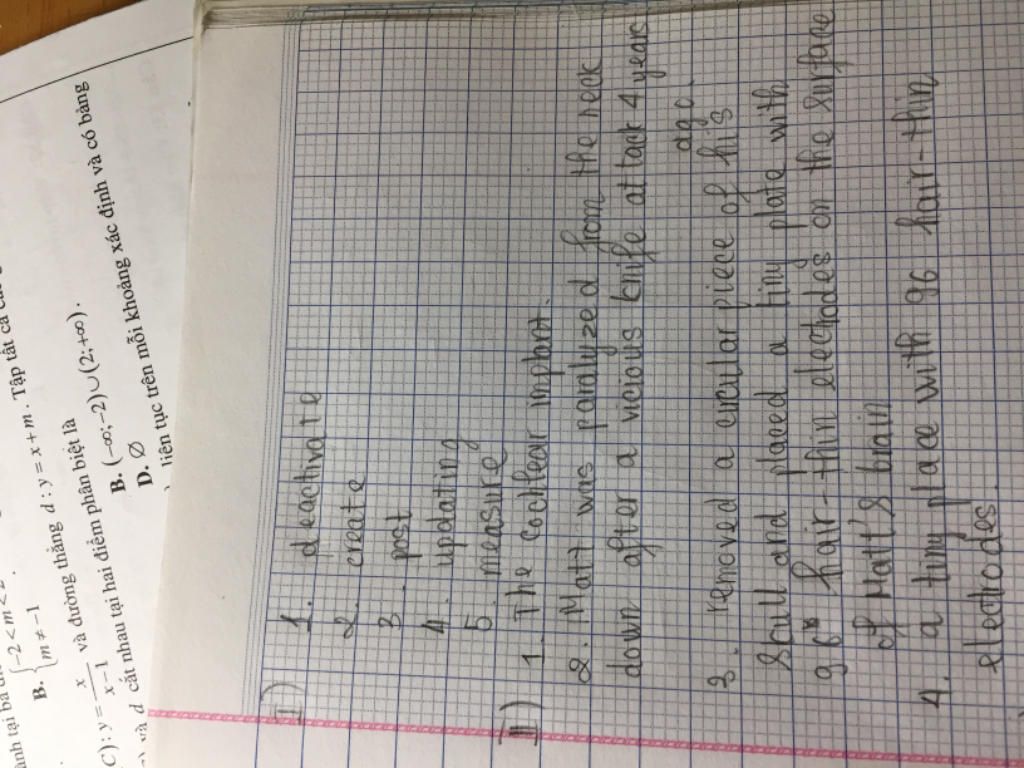 B. { -2 < m < 2
m ≠ -1 .
C): y = x/(x-1) và đường thẳng d : y = x + m . Tập tất cả
) và d cắt nhau tại hai điểm phân biệt là
B. (-∞;-2)∪(2;+∞).
D. ∅
liên tục trên mỗi khoảng xác định và có bảng
I) 1. deactivate
2. create
3. post
4. updating
5. measure
II) 1. The cochlear implant.
2. Matt was paralyzed from the neck
down after a vicious knife attack 4 years
ago.
3. removed a circular piece of his
scull and placed a tiny plate with
96 hair-thin electrodes on the surface
of Matt's brain
4. a tiny place with 96 hair-thin
electrodes